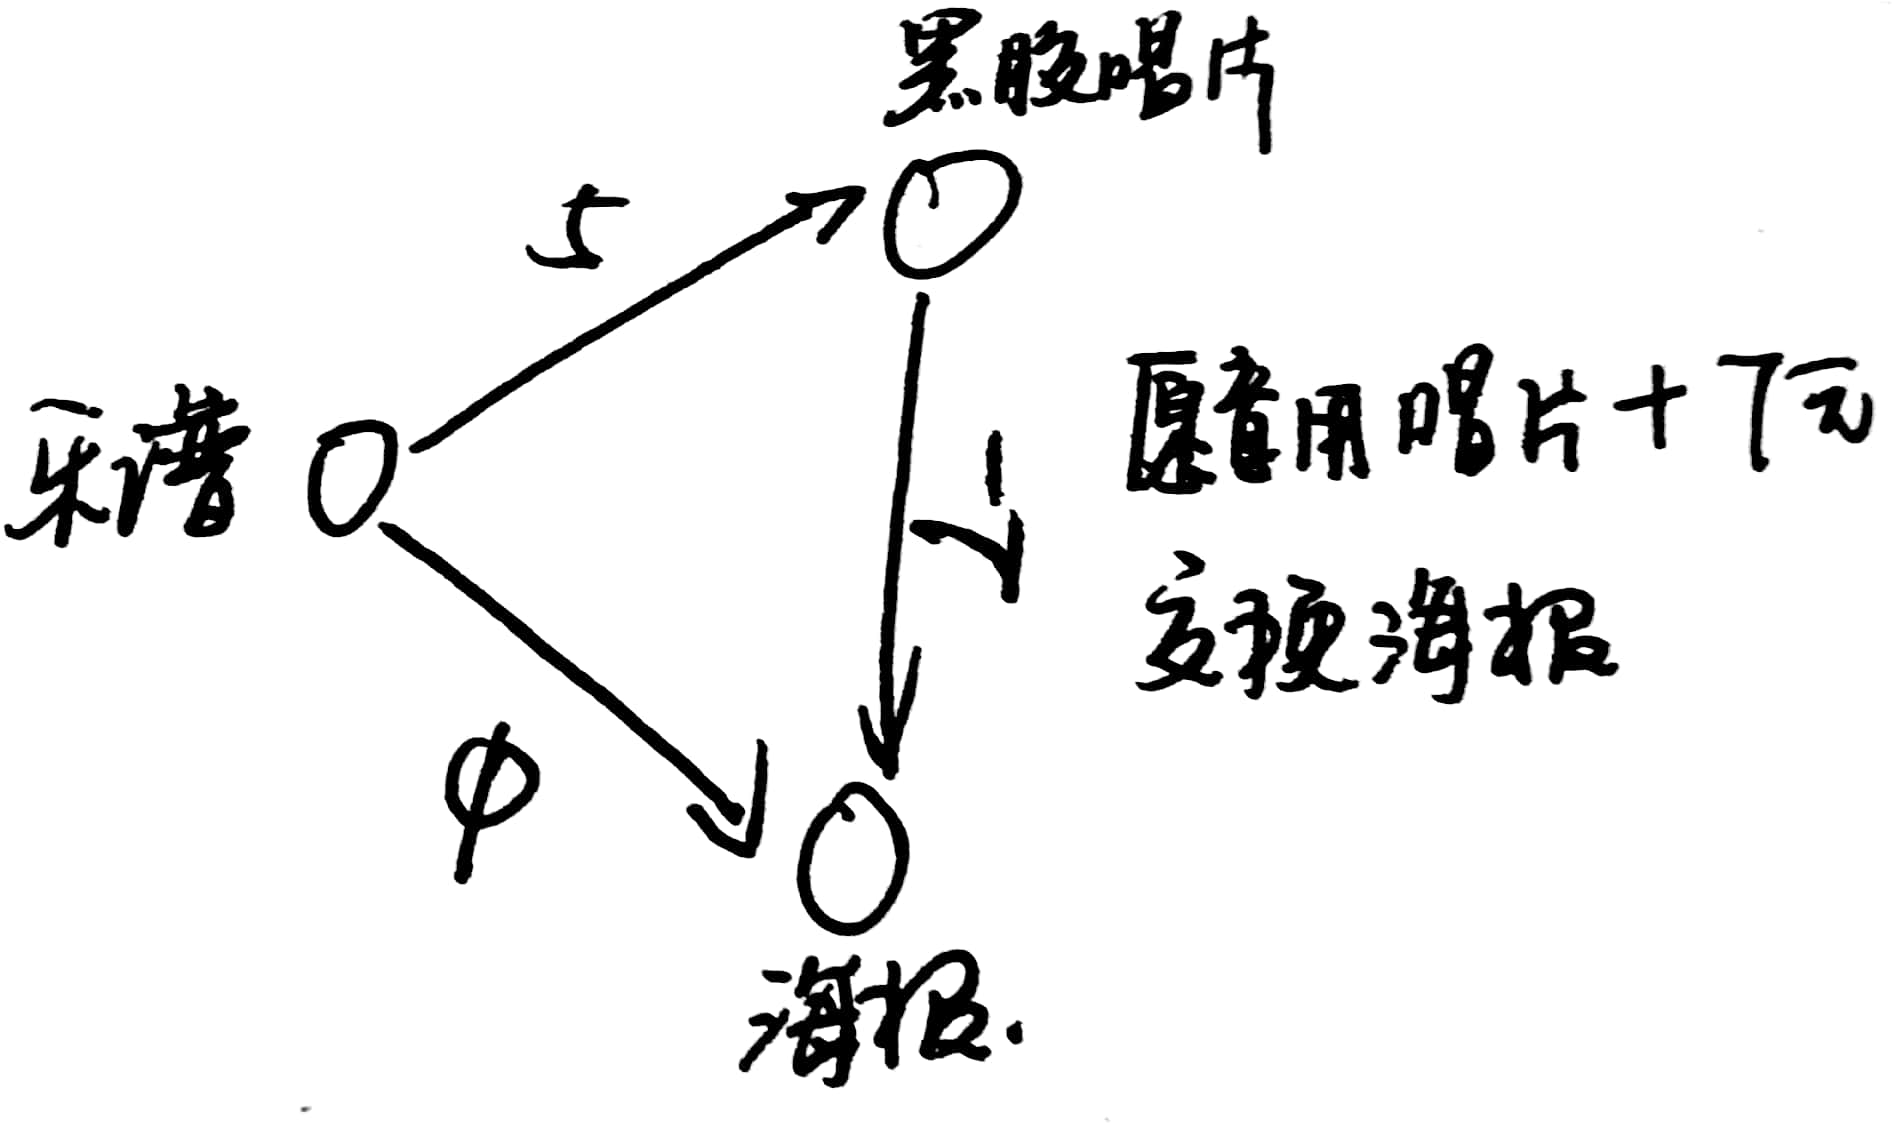 黑胶唱片
5
乐谱
-7
愿意用唱片+7元
交换海报
φ
海报.